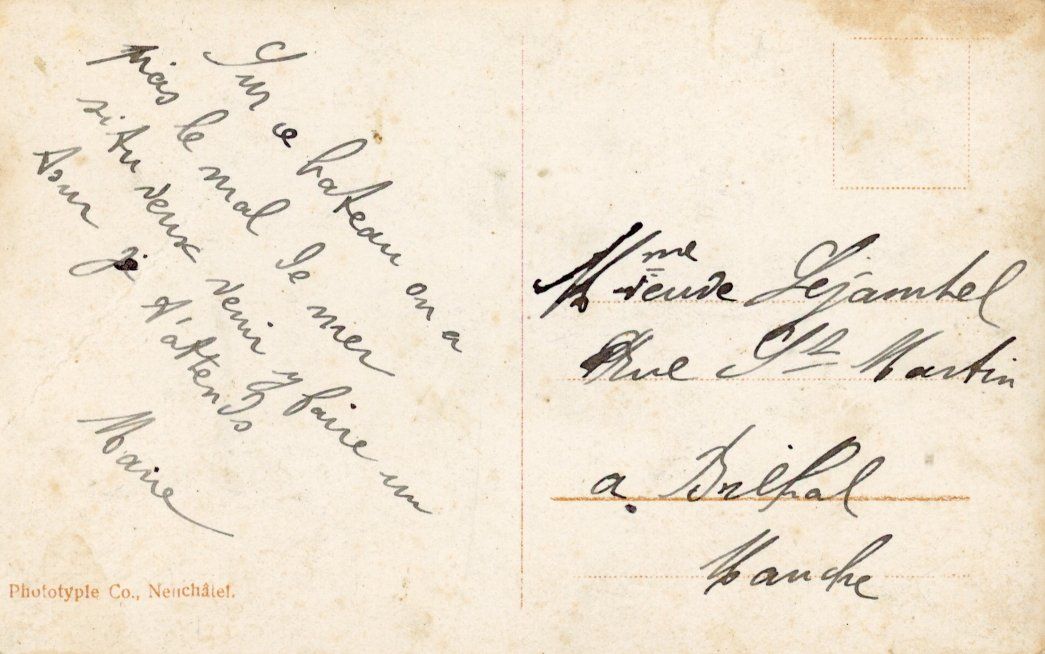 Sur ce bateau on a
pias le mal de mer
si tu veux venir y faire un
tour je t'attends
Marie
Mme veuve Lejambel
Rue St Martin
a Bréhal
Manche
Phototypie Co., Neuchâtel.